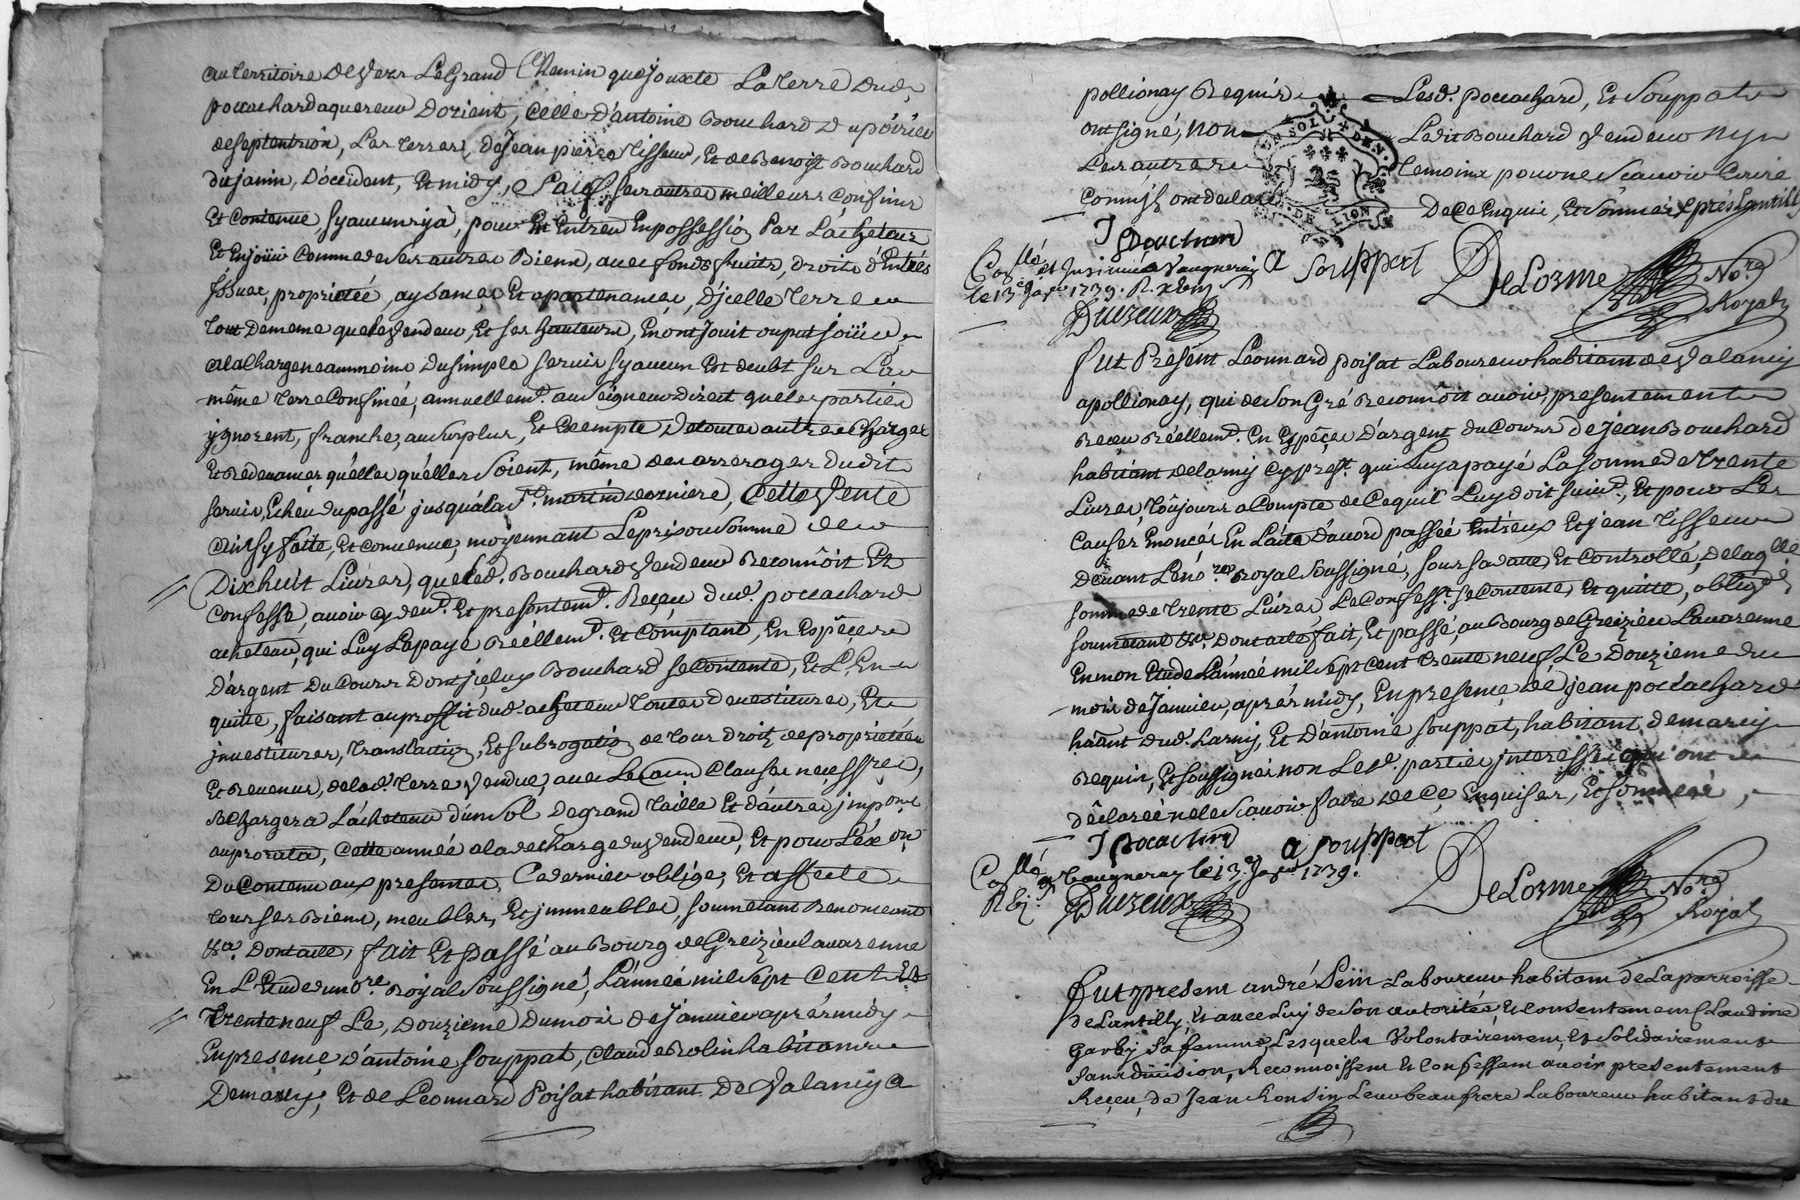 au territoire de Vezr Le Grand Chemin que jouxte La terre Dud.
pocachard aquereur Dorient, Celle d'antoine Bouchard Dupoirier
de septentrion, Les terres, de Jean pierre tisseur, Et de Benoist Bouchard
du janin, D'occident, Et midy, Sauf ses autres meilleurs Confins
Et Contenue, sy aucun y à, pour En Entrer En possession Par L'achetteur
Et En joüir Comme de ses autres Biens, avec fonds fruits, droits d'Entrés
Issues, propriétée, aysances Et apartenances, d'jcelle terre
tout De meme que le Vendeur, Et ses hauteurs, En ont Jouit ou put joüir
a la Charge neammoins Du simple servis sy aucun Est deubt sur La
même terre Confinée, annuellemt. au seigneur direct que les parties
ygnorent, franche, au surplus, Et Exempte De toutes autres Charges
Et Redevances qu'elles qu'elles soient, même des arrerages dudit
servis, Echeu du passé jusqu'a la st. martin derniere, Cette Vente
Ainsy faite, Et Convenue, moyennant Le prix ou somme de
Dixhuit Livres, que led. Bouchard Vendeur Reconnôit Et
Confesse, avoir cy devt. Et presentemt. Reçeu dud. pocachard
acheteur, qui Luy La payé Réellemt. Et Comptant, En Espêçes
D'argent Du Cours Dont jçeluy Bouchard se Contente, Et L'En
quitte, faisant au proffit dud. acheteur toutes Devestitures, Et
jnvestitures, translation, Et subrogation de tous droits de propriétée
Et Revenus, de lad. terre Vendue, avec Les Clauses necessres,
Se Chargera L'acheteur d'un sol De grand taille Et d'autres jmpons
au prorata, Cette année a la decharge du Vendeur, Et pour L'éxon
Du Contenu aux presentes, Ce dernier oblige, Et affecte
tous ses Biens, meubles, Et jmmeubles, soumetant Renonceant
&a. Dont acte, fait Et passé au Bourg de Greizieu la varenne
En L'Etude du nore. Royal soussigné, L'année mil sept Cent Et
trente neuf Le, Douzieme Du mois de Janvier apres midy
En presençe d'antoine souppat, Claude Rolin habitants
De marcy, Et de Léonnard Poisat habitant De Valancy a
pollionay Requis Lesd. pocachard, Et souppat
ont signé, non Ledit Bouchard Vendeur ny
Les autres temoins pour ne sçavoir Ecrire
Commis, ont declaré De Ce Enquis, Et sommés
J pocachard
a souppat
DeLorme Nore. Royal
Collé et Insinué a Vaugneray
le 13e. Janv. 1739.
SOL DEN
DE LION
fut Présent Léonnard poisat Laboureur habitant de Valancy
a pollionay, qui de son Gré Reconnôit avoir, presentement
Reçeu Réellemt. En Espêçes D'argent du Cours De Jéan Bouchard
habitant de Larny Cy prest. qui Luy a payé La somme de trente
Livres, toûjours a Compte de Ce qu'il Luy doit suivt. Et pour Les
Causes Enoncées En L'acte d'acord passée Entr'eux Et jean tisseur
Devant Le nore. Royal soussigné, sous sa datte, Et Controllé, De laqlle
somme de trente Livres Le Confesst. se Contente, Et quitte, obligt.
soumettant &a. Dont acte fait, Et passé, au Bourg de Greizieu La varenne
En mon Etude L'année mil sept cent trente neuf Le Douzieme du
mois de Janvier, après midy, En presençe de jean pocachard
haânt Dud. Larny, Et D'antoine souppat, habitant, de marcy
Requis, Et soussignés non Lesd. parties jnteressées qui ont
déclarée ne le sçavoir faire de Ce, Enquises, Et sommés
J pocachard
a souppat
DeLorme Nore. Royal
Collé a Vaugneray le 13e. Janv. 1739.
fut present andré Peiin Laboureur habitant de La parroisse
De Lantilly, Et avec Luy de son autoritée Et Consentement Claudine
Garby sa femme, Lesquels Volontairement, Et solidairement
sans division, Reconnoissent Et Confessent avoir presentement
Reçeu, de Jean Ronsin Leur beaufrere Laboureur habitant du